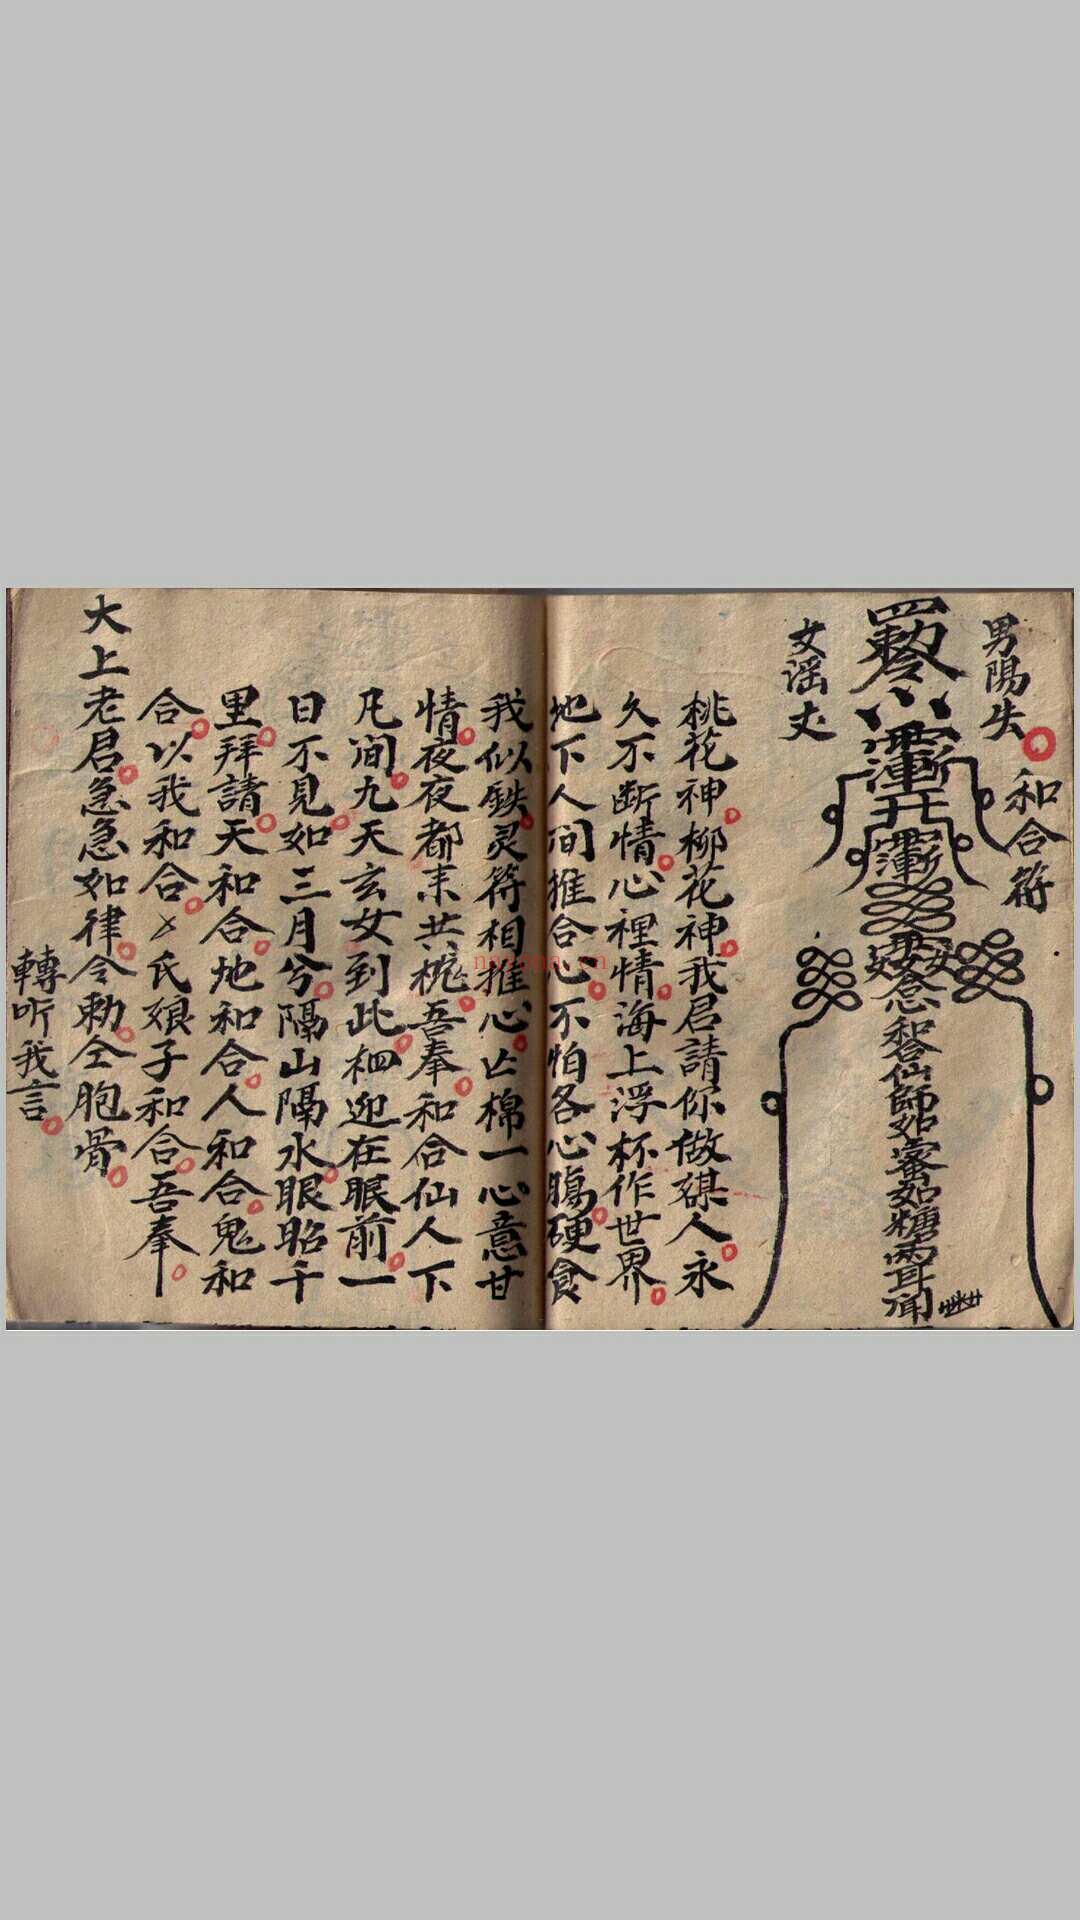 和合符
男陽失
敕
女謡丈
念和合仙師如蜜如糖兩耳闻
桃花神柳花神我君請你做媒人永
久不断情心裡情海上浮杯作世界
地下人间推合心不怕各心腸硬食
我似鉄灵符相推心亡棉一心意甘
情夜夜都来共枕吾奉和合仙人下
凡间九天玄女到此裀迎在眠前一
日不見如三月兮隔山隔水眼昭千
里拜請天和合地和合人和合鬼和
合以我和合乂氏娘子和合吾奉
大上老君急急如律令勅仝胞骨
轉听我言
nayona.cn